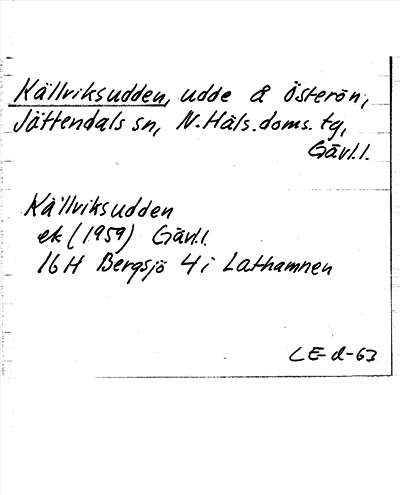 Källviksudden, udde å Österön,
Jättendals sn, N. Häls. doms. tg,
Gävl.l.
Källviksudden
ek (1959) Gävl.l.
16H Bergsjö 4i Lathamnen
LE-d-63